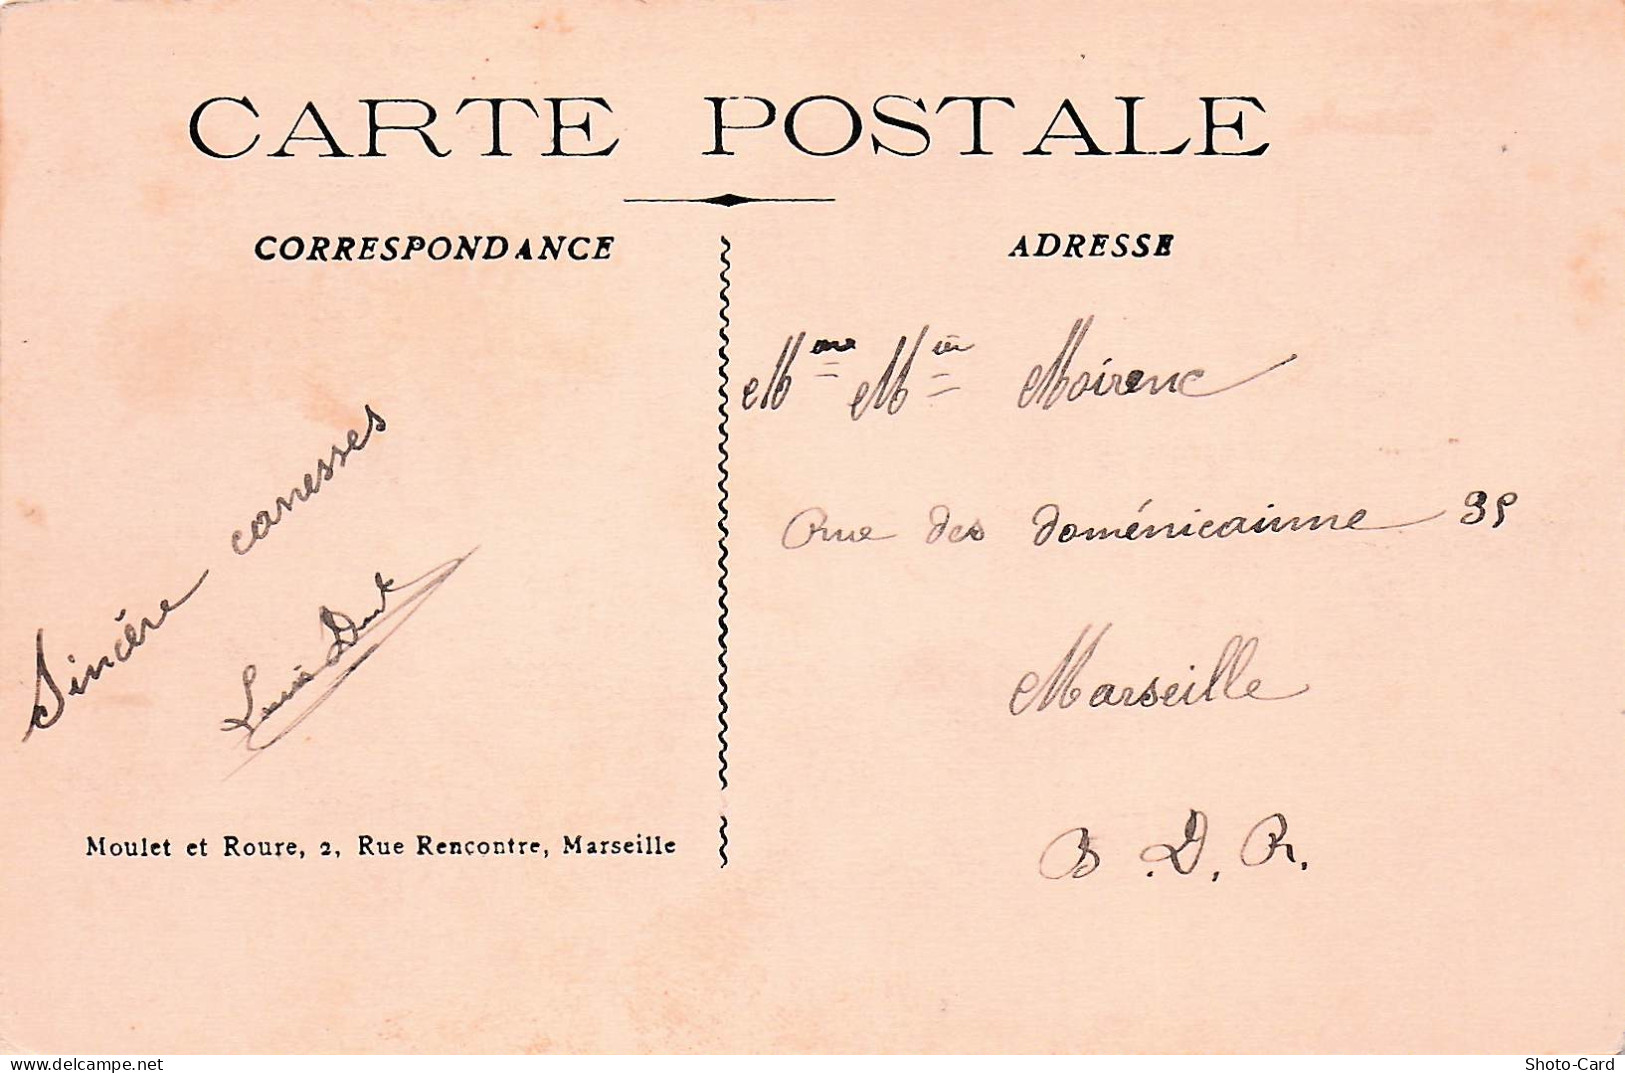 CARTE POSTALE
CORRESPONDANCE
ADRESSE
Sincère carresses
Moulet et Roure, 2, Rue Rencontre, Marseille
Mme Mlle Moirenc
Rue des doménicainne 35
Marseille
B.D.R.
www.delcampe.net
Shoto-Card